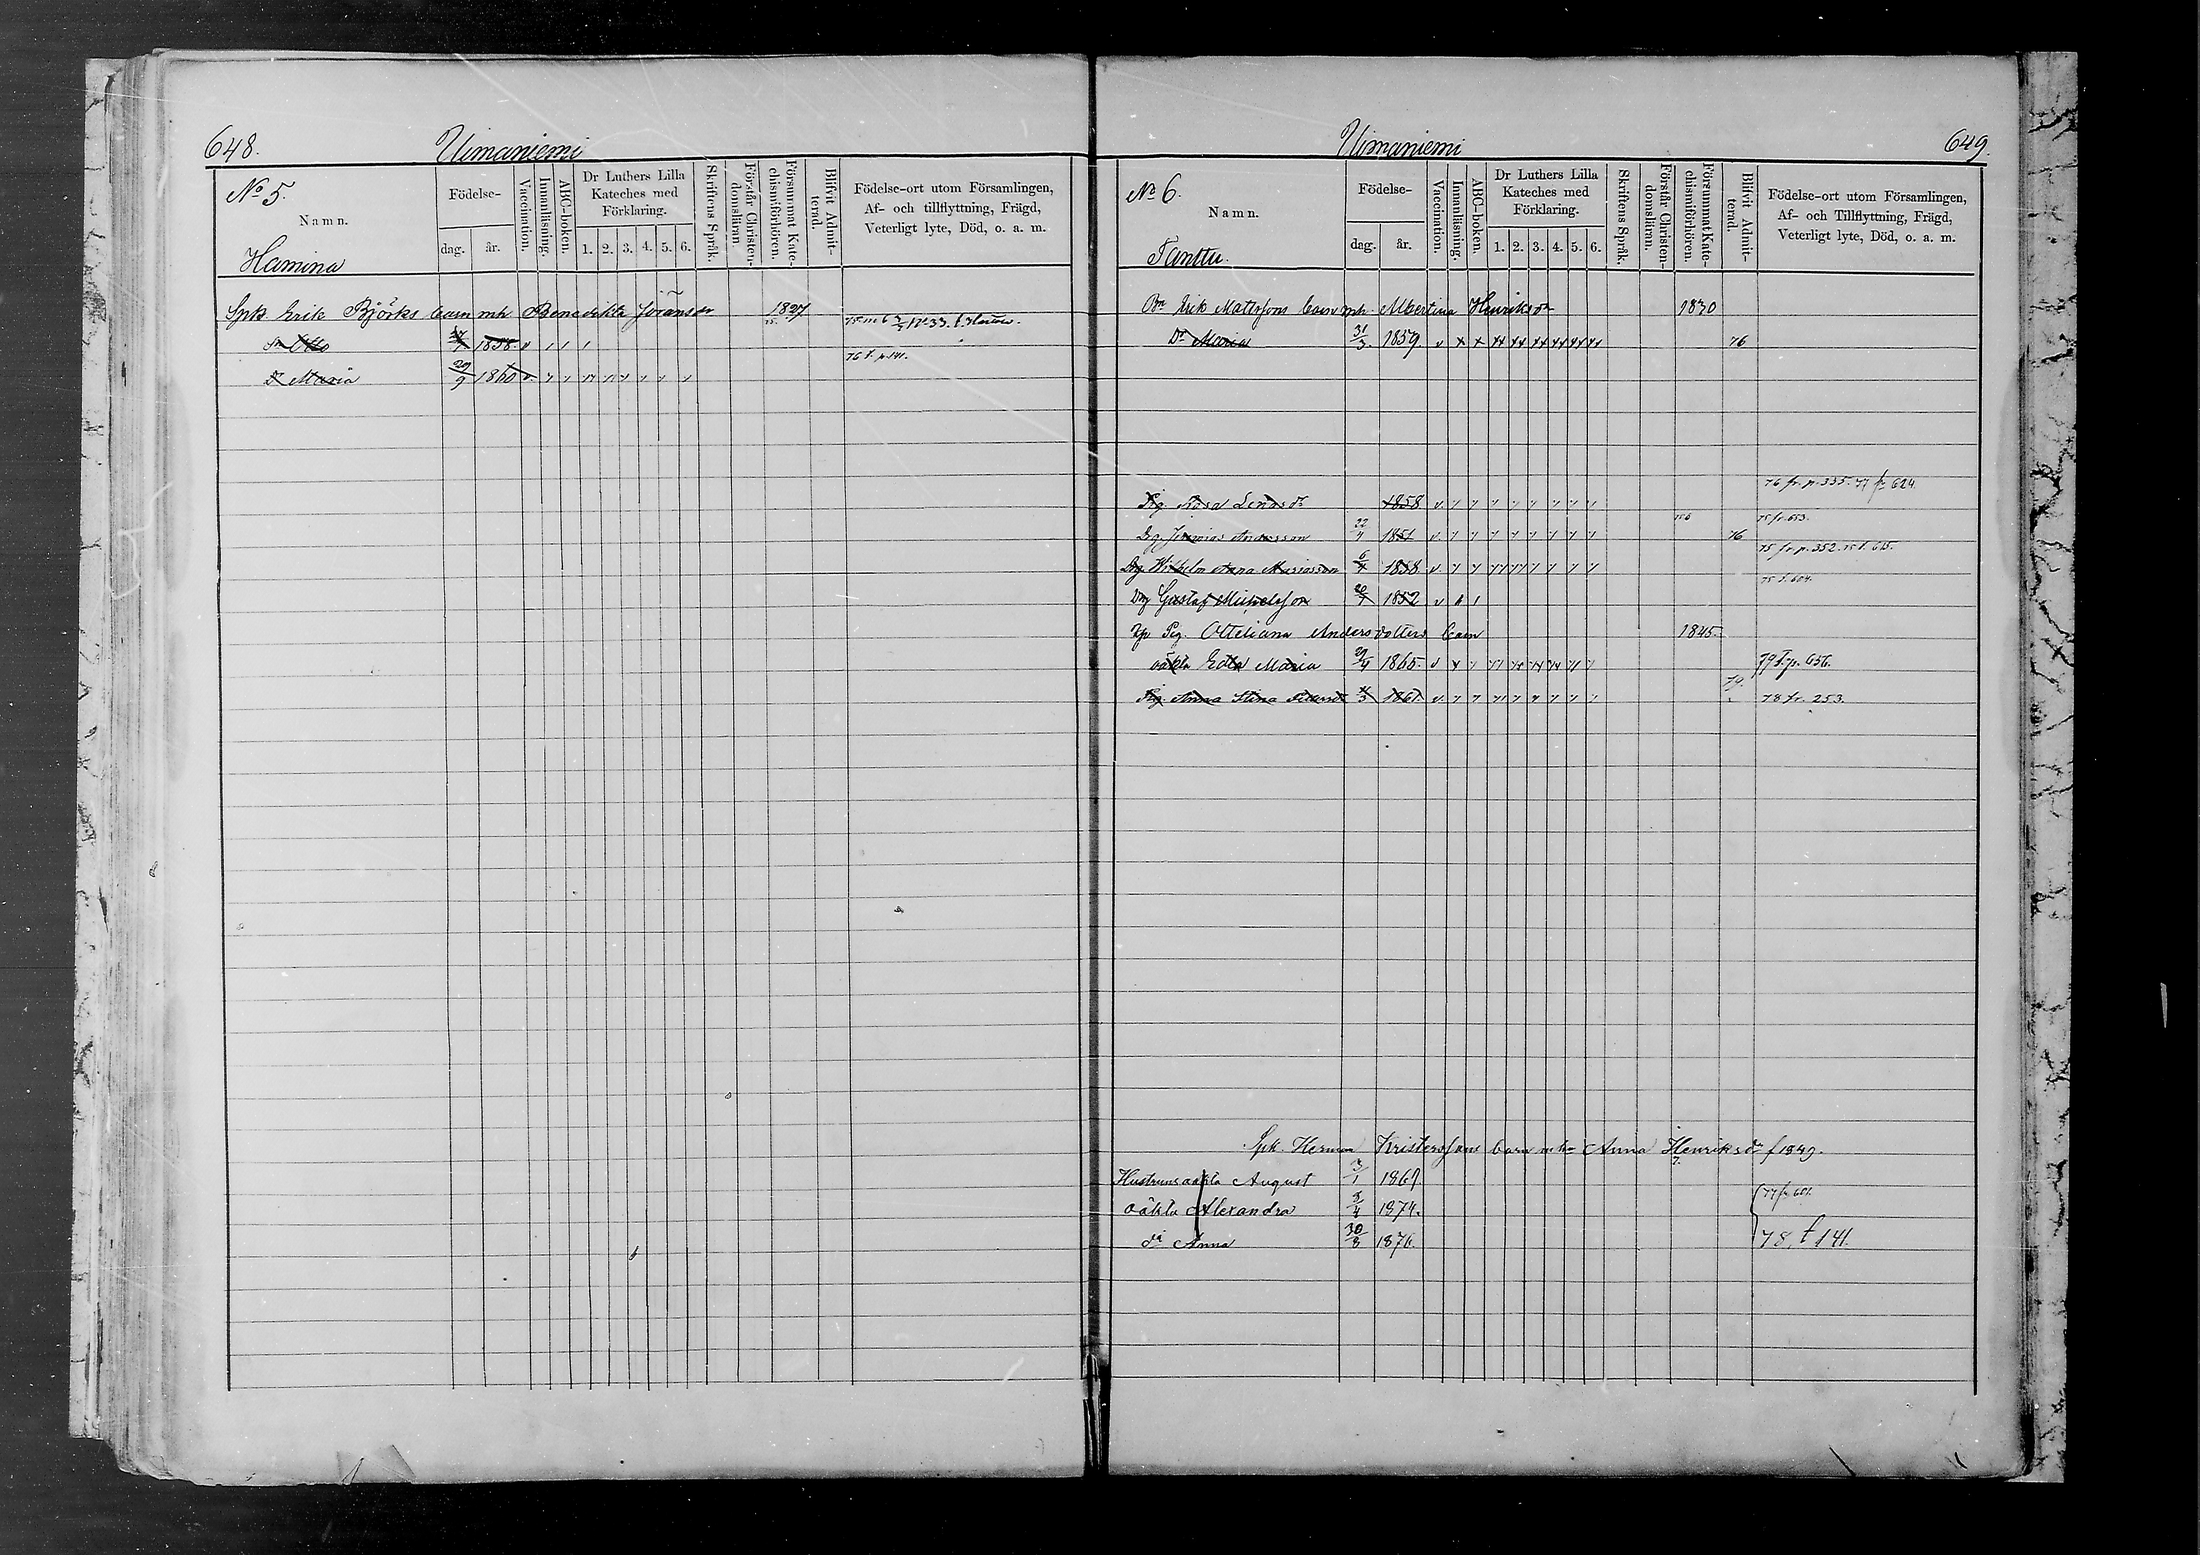 648.
Uimaniemi
No 5.
Namn.
Hamina
Födelse-
dag.
år.
Vaccination.
Innanläsning.
ABC-boken.
Dr Luthers Lilla
Kateches med
Förklaring.
1. 2. 3. 4. 5. 6.
Skriftens Språk.
Förstår Christen-
domsläran.
Försummat Kate-
chismiförhören.
Blifvit Admit-
terad.
Födelse-ort utom Församlingen,
Af- och tillflyttning, Frägd,
Veterligt lyte, Död, o. a. m.
Spk. Erik Björks barn mh Benedikta Göransdr 1827
Sn Otto 1858. v
76 t. p. 141.
Dr Maria 29/9 1860 v.
Uimaniemi
649.
No 6.
Namn.
Tanttu.
Födelse-
dag.
år.
Vaccination.
Innanläsning.
ABC-boken.
Dr Luthers Lilla
Kateches med
Förklaring.
1. 2. 3. 4. 5. 6.
Skriftens Språk.
Förstår Christen-
domsläran.
Försummat Kate-
chismiförhören.
Blifvit Admit-
terad.
Födelse-ort utom Församlingen,
Af- och Tillflyttning, Frägd,
Veterligt lyte, Död, o. a. m.
Bn Erik Mattssons barn mh. Albertina Henriksdr 1830
Dr Maria 31/3. 1859. v 76
76 fr. p. 335. 77 fr 624.
Pig. Rosa Lenasdr 1858 v.
75 fr. 653.
Drg. Jeremias Andersson 22 1851 v. 76
75 fr. p. 352. 75 t. 615.
Drg Wilhelm Anna Mariasson 1858 v.
75 t. 604.
Drg Gustaf Michelsson 1852 v
Pig. Otteliana Andersdotters barn 1845.
oäkta Edla Maria 29/4 1865. v 79 t. p. 656.
79.
Pig. Anna Stina 1861. v. 78 fr. 253.
Spk. Herman Kristerssons barn m hu Anna Henriksdr f 1849.
Hustruns oäkta August 3/1 1869.
77 fr 651.
oäkta Alexandra 9/4 1874.
da Anna 30/8 1876. 78. t 141.